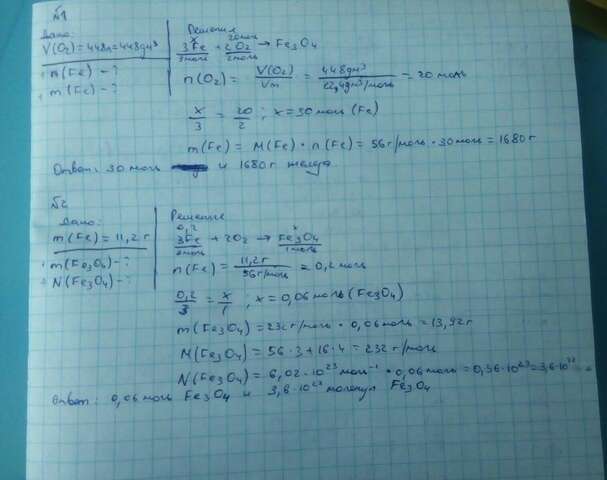 №1
Дано:
V(O₂)=448л=448дм³
n(Fe) - ?
m(Fe) - ?
Решение
x 20моль
3Fe + 2O₂ → Fe₃O₄
3моль 2моль
n(O₂) = V(O₂)/Vm = 448дм³/22,4дм³/моль = 20 моль
x/3 = 20/2 ; x=30 моль (Fe)
m(Fe) = M(Fe) · n(Fe) = 56 г/моль · 30 моль = 1680 г
Ответ: 30 моль и 1680 г железа
№2
Дано:
m(Fe) = 11,2 г
m(Fe₃O₄) - ?
N(Fe₃O₄) - ?
Решение
0,2 x
3Fe + 2O₂ → Fe₃O₄
3моль 1моль
n(Fe) = 11,2г/56г/моль = 0,2 моль
0,2/3 = x/1 , x = 0,06 моль (Fe₃O₄)
m(Fe₃O₄) = 232 г/моль · 0,06 моль = 13,92 г
M(Fe₃O₄) = 56·3+16·4 = 232 г/моль
N(Fe₃O₄) = 6,02·10²³ моль⁻¹ · 0,06 моль = 0,36·10²³ = 3,6·10²²
Ответ: 0,06 моль Fe₃O₄ и 3,6·10²² молекул Fe₃O₄